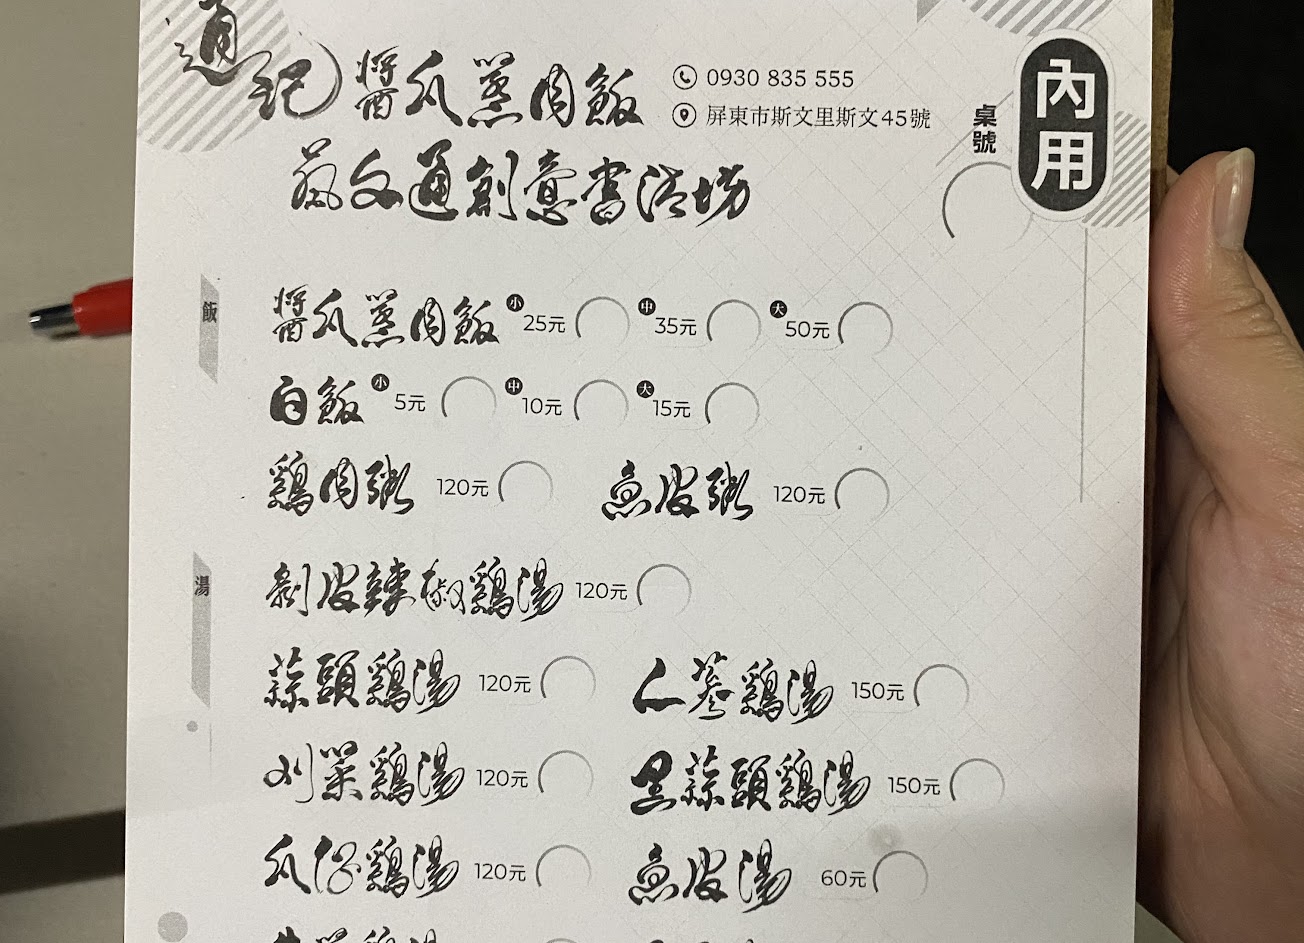 通記 醬瓜蒸肉飯
0930 835 555
屏東市斯文里斯文45號
內用
桌號
蔴文通創意書法坊
飯
醬瓜蒸肉飯 小 25元 中 35元 大 50元
白飯 小 5元 中 10元 大 15元
鷄肉粥 120元 魚皮粥 120元
湯
剝皮辣椒鷄湯 120元
蒜頭鷄湯 120元 仁蔘鷄湯 150元
刈菜鷄湯 120元 黑蒜頭鷄湯 150元
瓜仔鷄湯 120元 魚皮湯 60元